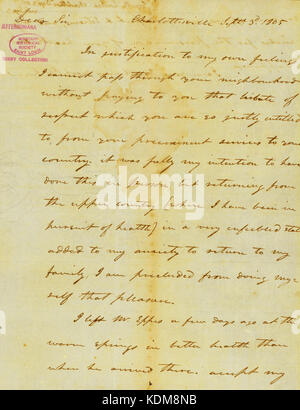 Dear Sir
Charlottesville Sept 3. 1805
JEFFERSONIANA
MISSOURI HISTORICAL SOCIETY
SAINT LOUIS
BIXBY COLLECTION
In justification to my own feelings
I cannot pass through your neighbourhood
without paying to you that tribute of
respect which you are so justly intitled
to, from your preeminent services to your
country. it was fully my intention to have
done this in person, but returning from
the upper country (where I have been in
pursuit of health) in a very enfeebled state
added to my anxiety to return to my
family I am precluded from doing my-
self that pleasure.
I left Mr. Eppes a few days ago at the
warm springs in better health than
when he arrived there. accept my
alamy
KDM8NB